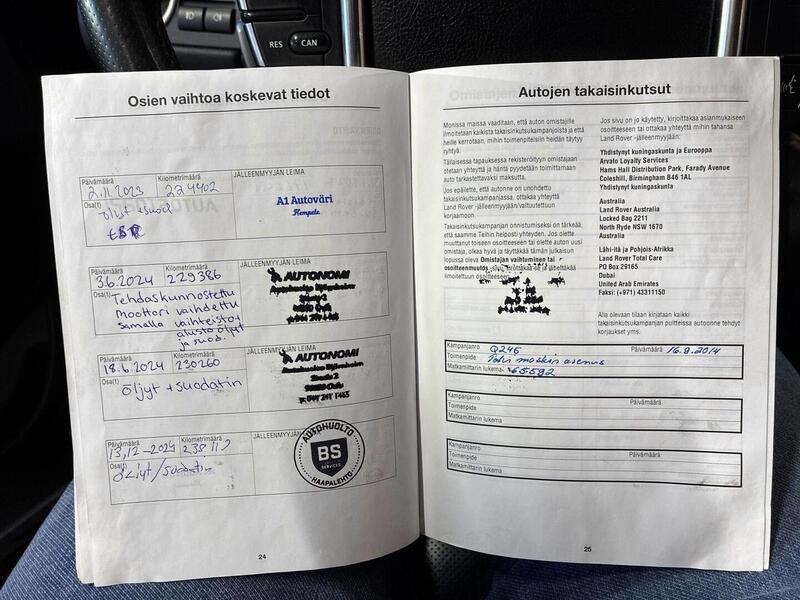 RES CAN
Osien vaihtoa koskevat tiedot
Päivämäärä
Kilometrimäärä
JÄLLEENMYYJÄN LEIMA
2.11.2023
224402
Osa(t)
öljyt + suod
A1 Autoväri
Kempele
Päivämäärä
Kilometrimäärä
JÄLLEENMYYJÄN LEIMA
3.6.2024
229386
Osa(t)
Tehdaskunnostettu
Moottori vaihdettu
samalla vaihteiston
alusto öljyt
ja suod.
AUTONOMI
Päivämäärä
Kilometrimäärä
JÄLLEENMYYJÄN LEIMA
18.6.2024
230260
Osa(t)
Öljyt + suodatin
AUTONOMI
Päivämäärä
Kilometrimäärä
JÄLLEENMYYJÄN
13.12-2024
Osa(t)
Öljyt/suodatin
AUTOHUOLTO
BS
SERVICES
HAAPALEHTO
24
Autojen takaisinkutsut
Monissa maissa vaaditaan, että auton omistajille
ilmoitetaan kaikista takaisinkutsukampanjoista ja että
heille kerrotaan, mihin toimenpiteisiin heidän täytyy
ryhtyä.
Tällaisessa tapauksessa rekisteröityyn omistajaan
otetaan yhteyttä ja häntä pyydetään toimittamaan
auto tarkastettavaksi maksutta.
Jos epäilette, että autonne on unohdettu
takaisinkutsukampanjassa, ottakaa yhteyttä
Land Rover -jälleenmyyjään/valtuutettuun
korjaamoon.
Takaisinkutsukampanjan onnistumiseksi on tärkeää,
että saamme Teihin helposti yhteyden. Jos olette
muuttanut toiseen osoitteeseen tai olette auton uusi
omistaja, olkaa hyvä ja täyttäkää tämän julkaisun
lopussa oleva Omistajan vaihtuminen tai
osoitteenmuutos -sivu, irrottakaa se ja lähettäkää
ilmoitettuun osoitteeseen.
Jos sivu on jo käytetty, kirjoittakaa asianmukaiseen
osoitteeseen tai ottakaa yhteyttä mihin tahansa
Land Rover -jälleenmyyjään:
Yhdistynyt kuningaskunta ja Eurooppa
Arvato Loyalty Services
Hams Hall Distribution Park, Farady Avenue
Coleshill, Birmingham B46 1AL
Yhdistynyt kuningaskunta
Australia
Land Rover Australia
Locked Bag 2211
North Ryde NSW 1670
Australia
Lähi-itä ja Pohjois-Afrikka
Land Rover Total Care
PO Box 29165
Dubai
United Arab Emirates
Faksi: (+971) 43311150
Alla olevaan tilaan kirjataan kaikki
takaisinkutsukampanjan puitteissa autoonne tehdyt
korjaukset yms.
Kampanjanro Q246 Päivämäärä 16.9.2014
Toimenpide
Matkamittarin lukema 65592
Kampanjanro Päivämäärä
Toimenpide
Matkamittarin lukema
Kampanjanro Päivämäärä
Toimenpide
Matkamittarin lukema
25